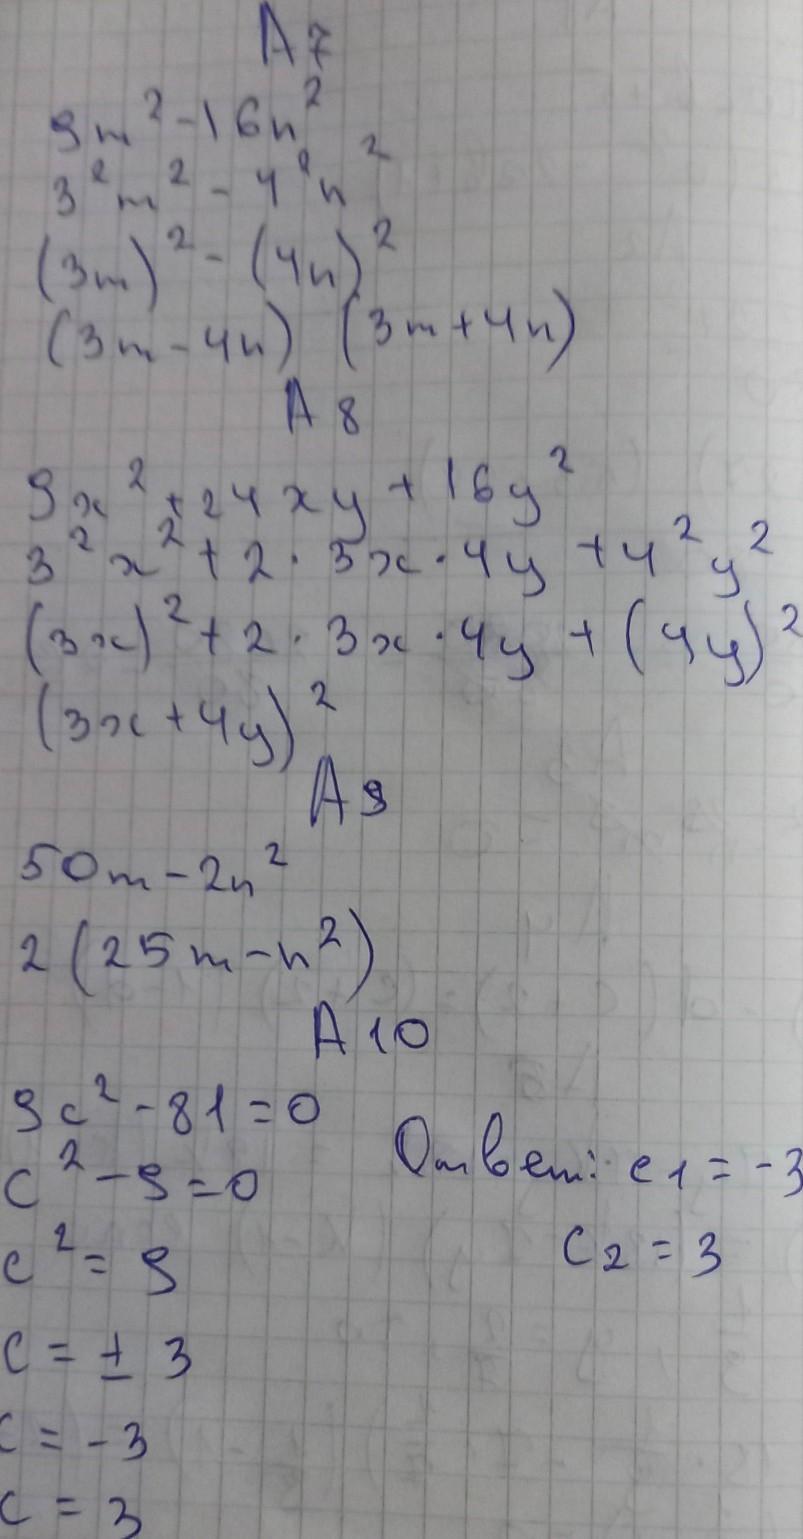 А7
9m² - 16n²
3²m² - 4²n²
(3m)² - (4n)²
(3m - 4n) (3m + 4n)
А8
9x² + 24xy + 16y²
3²x² + 2 · 3x · 4y + 4²y²
(3x)² + 2 · 3x · 4y + (4y)²
(3x + 4y)²
А9
50m - 2n²
2(25m - n²)
А10
9c² - 81 = 0
c² - 9 = 0
c² = 9
c = ± 3
c = -3
c = 3
Ответ: c1 = -3
c2 = 3